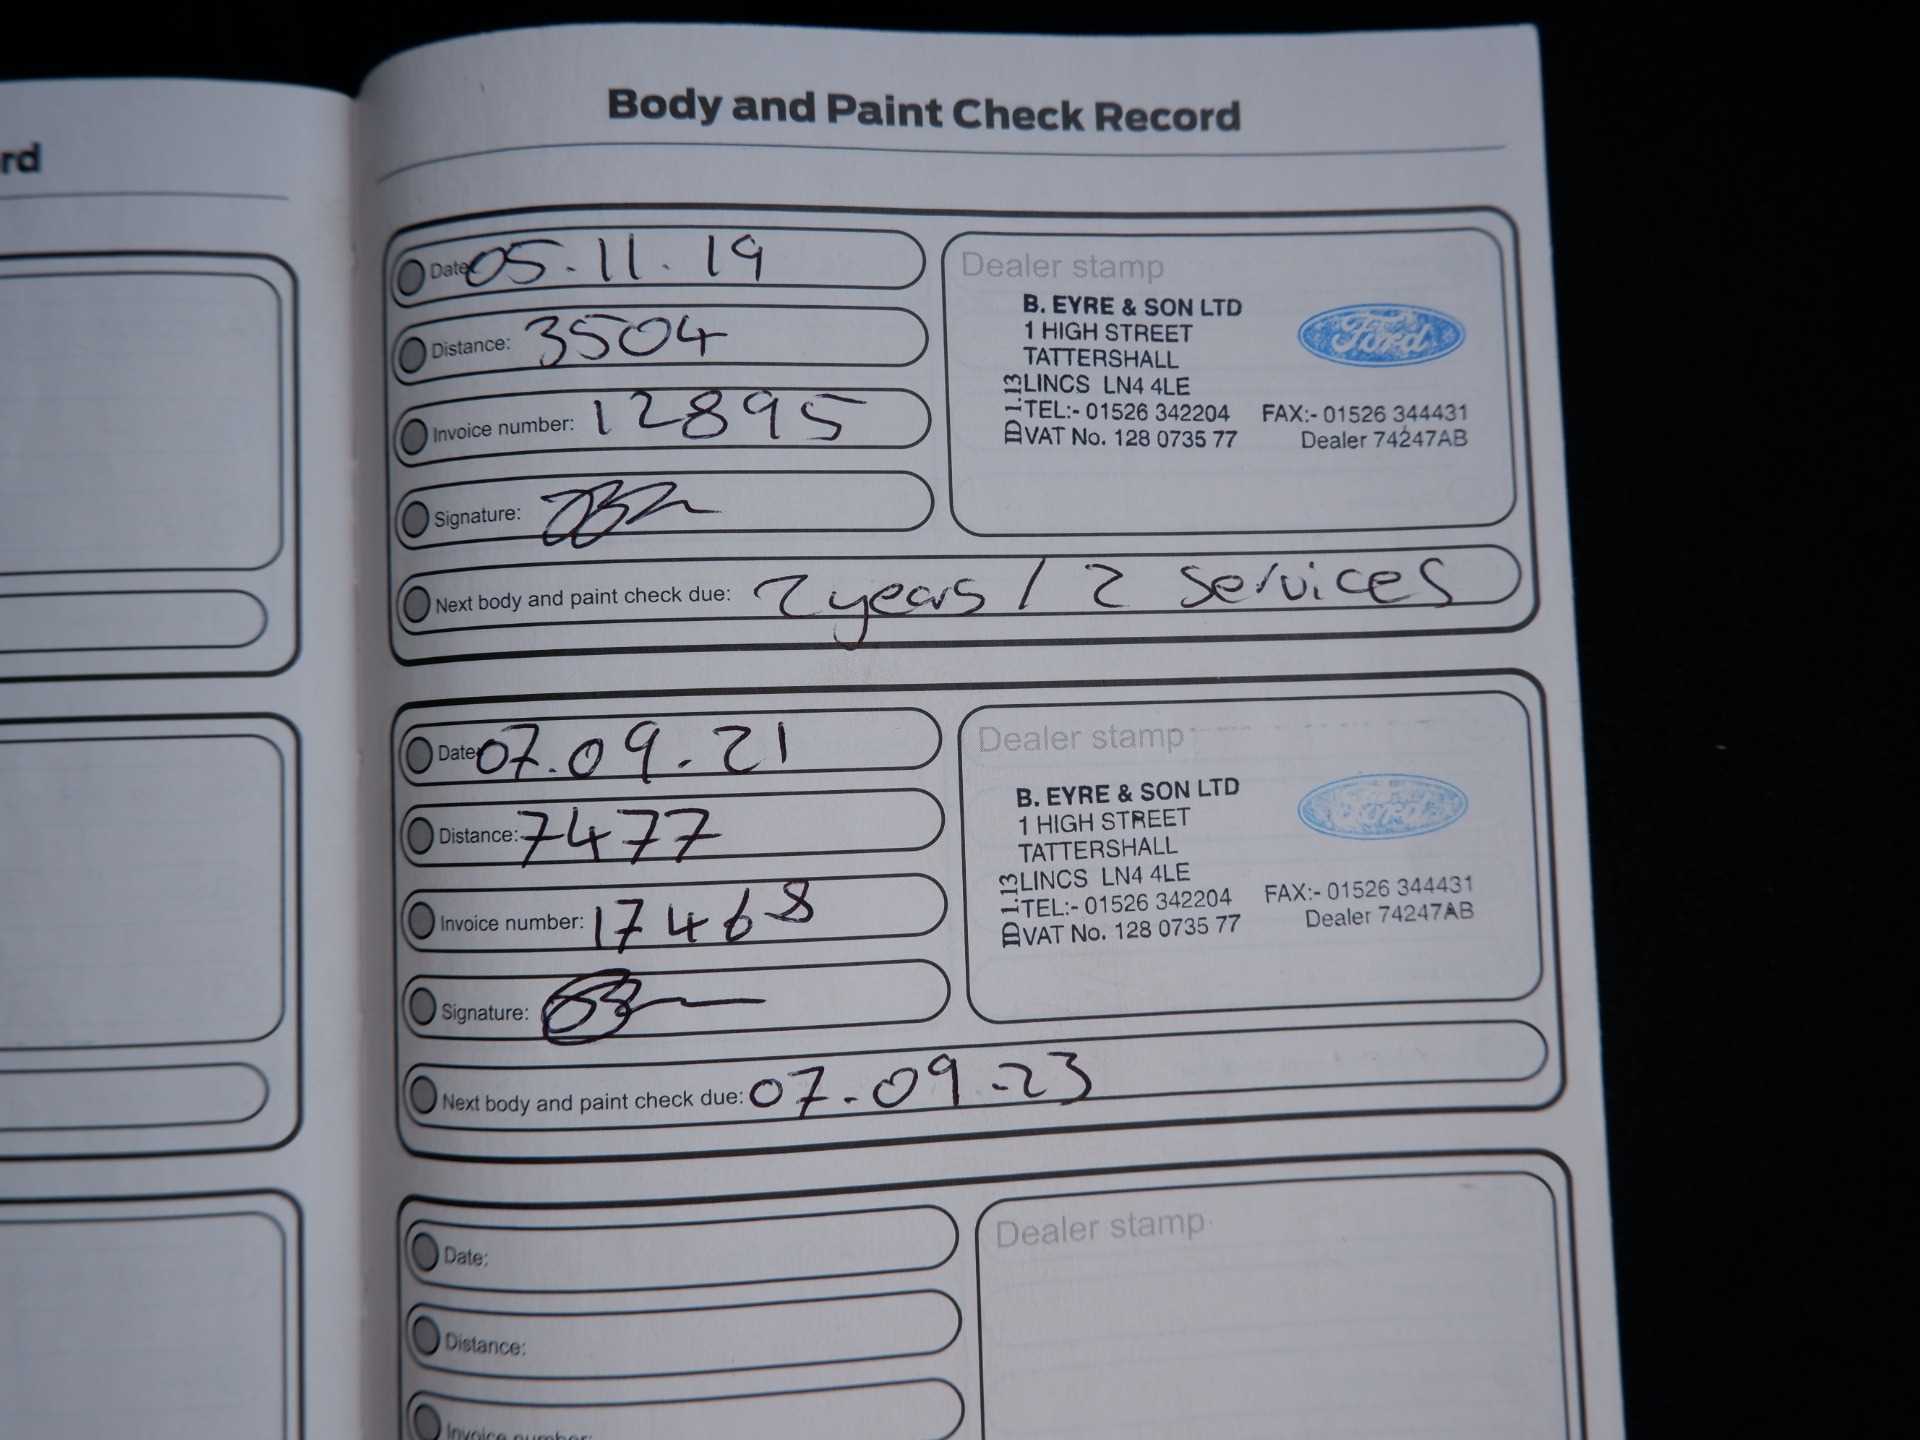 rd
Body and Paint Check Record
Date 05.11.19
Distance: 3504
Invoice number: 12895
Signature:
Next body and paint check due: 2 years / 2 services
Dealer stamp
B. EYRE & SON LTD
1 HIGH STREET
TATTERSHALL
LINCS LN4 4LE
TEL:- 01526 342204 FAX:- 01526 344431
VAT No. 128 0735 77 Dealer 74247AB
ID 1.13
Ford
Date 07.09.21
Distance: 7477
Invoice number: 17468
Signature:
Next body and paint check due: 07.09.23
Dealer stamp
B. EYRE & SON LTD
1 HIGH STREET
TATTERSHALL
LINCS LN4 4LE
TEL:- 01526 342204 FAX:- 01526 344431
VAT No. 128 0735 77 Dealer 74247AB
ID 1.13
Ford
Date:
Distance:
Invoice number:
Dealer stamp